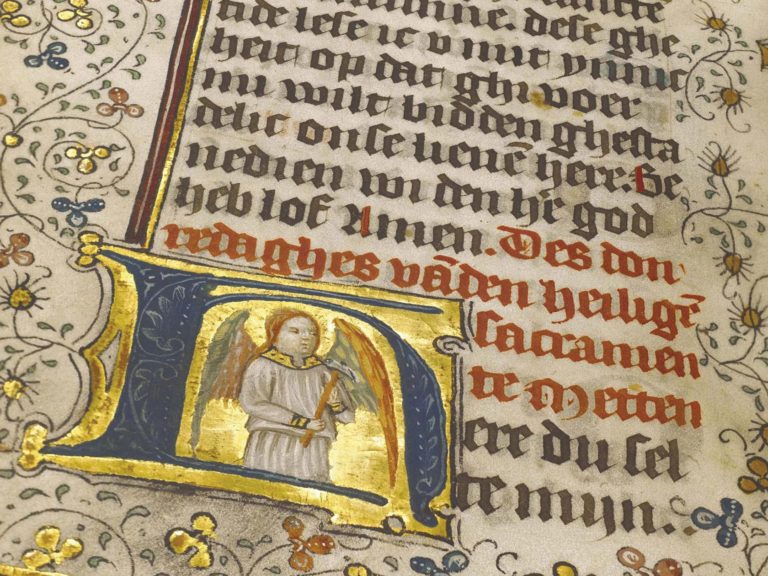 mine. dese ghe
tide lese ic v mit ynnic
heit op dat ghi voer
mi wilt bidden ghesta
delic onse lieuē here. Be
nedien wi den hē god
heb lof Amen. Des don
redaghes vāden heiligē
sacramen
te Metten
Here du sel
te mijn